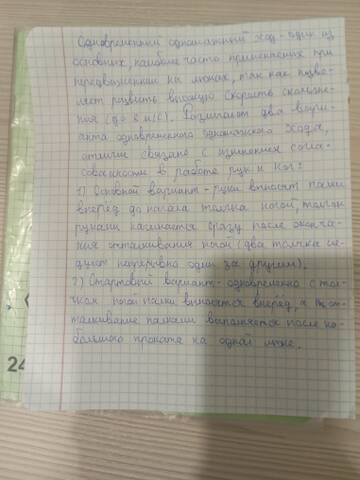 Одновременный одношажный ход - один из
основных, наиболее часто применяемых при
передвижении на лыжах, так как позво-
ляет развить высокую скорость скольже-
ния (до 8 м/с). Различают два вари-
анта одновременного одношажного хода,
отличие связано с изменением согла-
сованности в работе рук и ног:
1) Основной вариант - руки выносят палки
вперед до начала толчка ногой, толчок
руками начинается сразу после оконча-
ния отталкивания ногой (два толчка сле-
дуют непрерывно один за другим).
2) Стартовый вариант - одновременно с тол-
чком ногой палки выносятся вперед, а от-
талкивание палками выполняется после не-
большого проката на одной лыже.
24